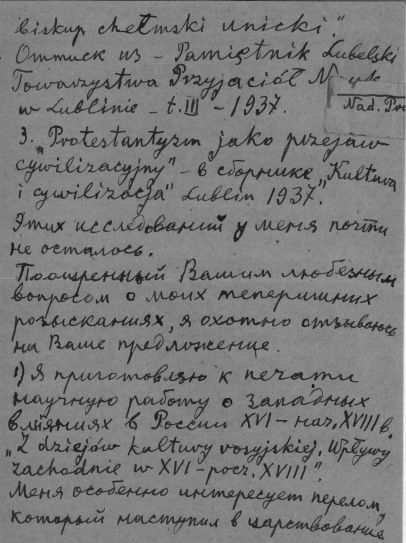 biskup chełmski unicki."
Оттиск из - Pamiętnik Lubelski
Towarzystwa Przyjaciół Nauk
w Lublinie - t. III - 1937.
Nad. Prz
3. "Protestantyzm jako przejaw
cywilizacyjny" - в сборнике "Kultura
i cywilizacja" Lublin 1937.
Этих исследований у меня почти
не осталось.
Поощренный Вашим любезным
вопросом о моих теперишних
розысканиях, я охотно отзываюсь
на Ваше предложение.
1) Я приготовляю к печати
научную работу о западных
влияниях в России XVI - нач. XVIII в.
"Z dziejów kultury rosyjskiej. Wpływy
zachodnie w XVI - pocz. XVIII".
Меня особенно интересует перелом,
который наступил в царствование